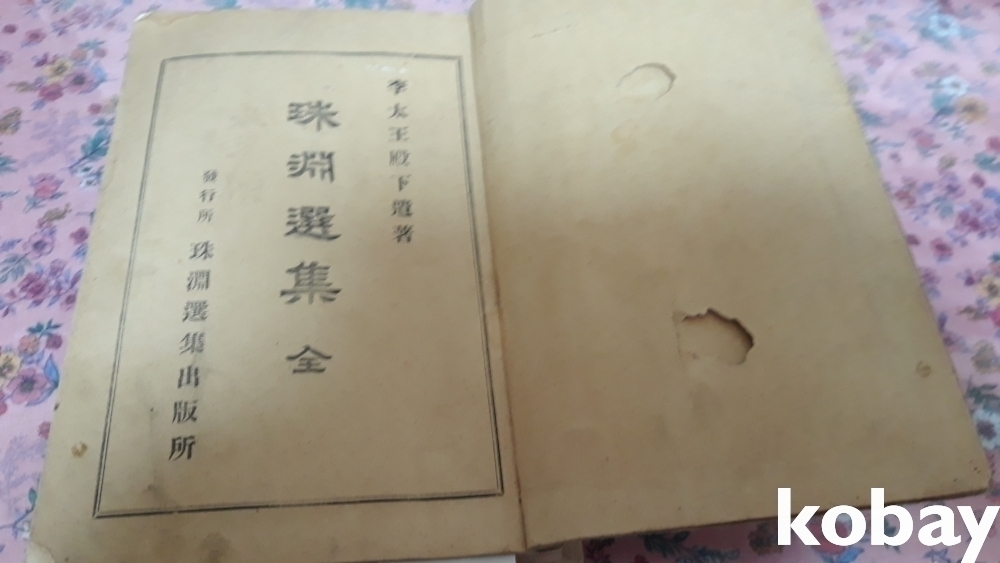 李太王殿下遺著
珠淵選集 全
發行所 珠淵選集出版所
kobay